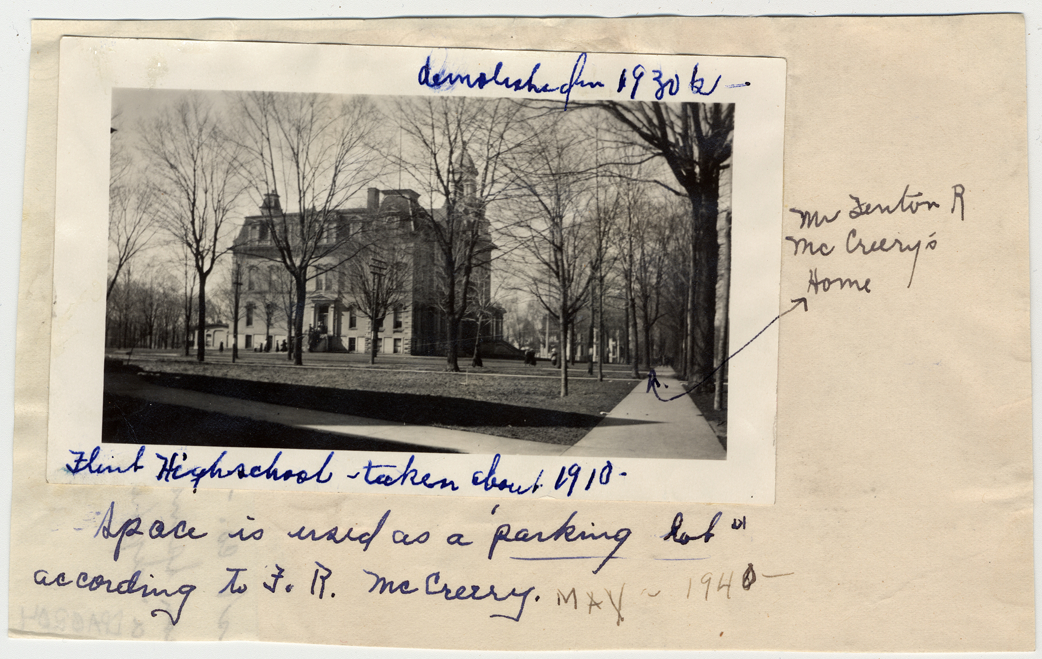 demolished in 1930
Mr Fenton R
Mc Creery's
Home
Flint Highschool - taken about 1910 -
Space is used as a "parking lot"
according to F. R. McCreery. MAY - 1940 -